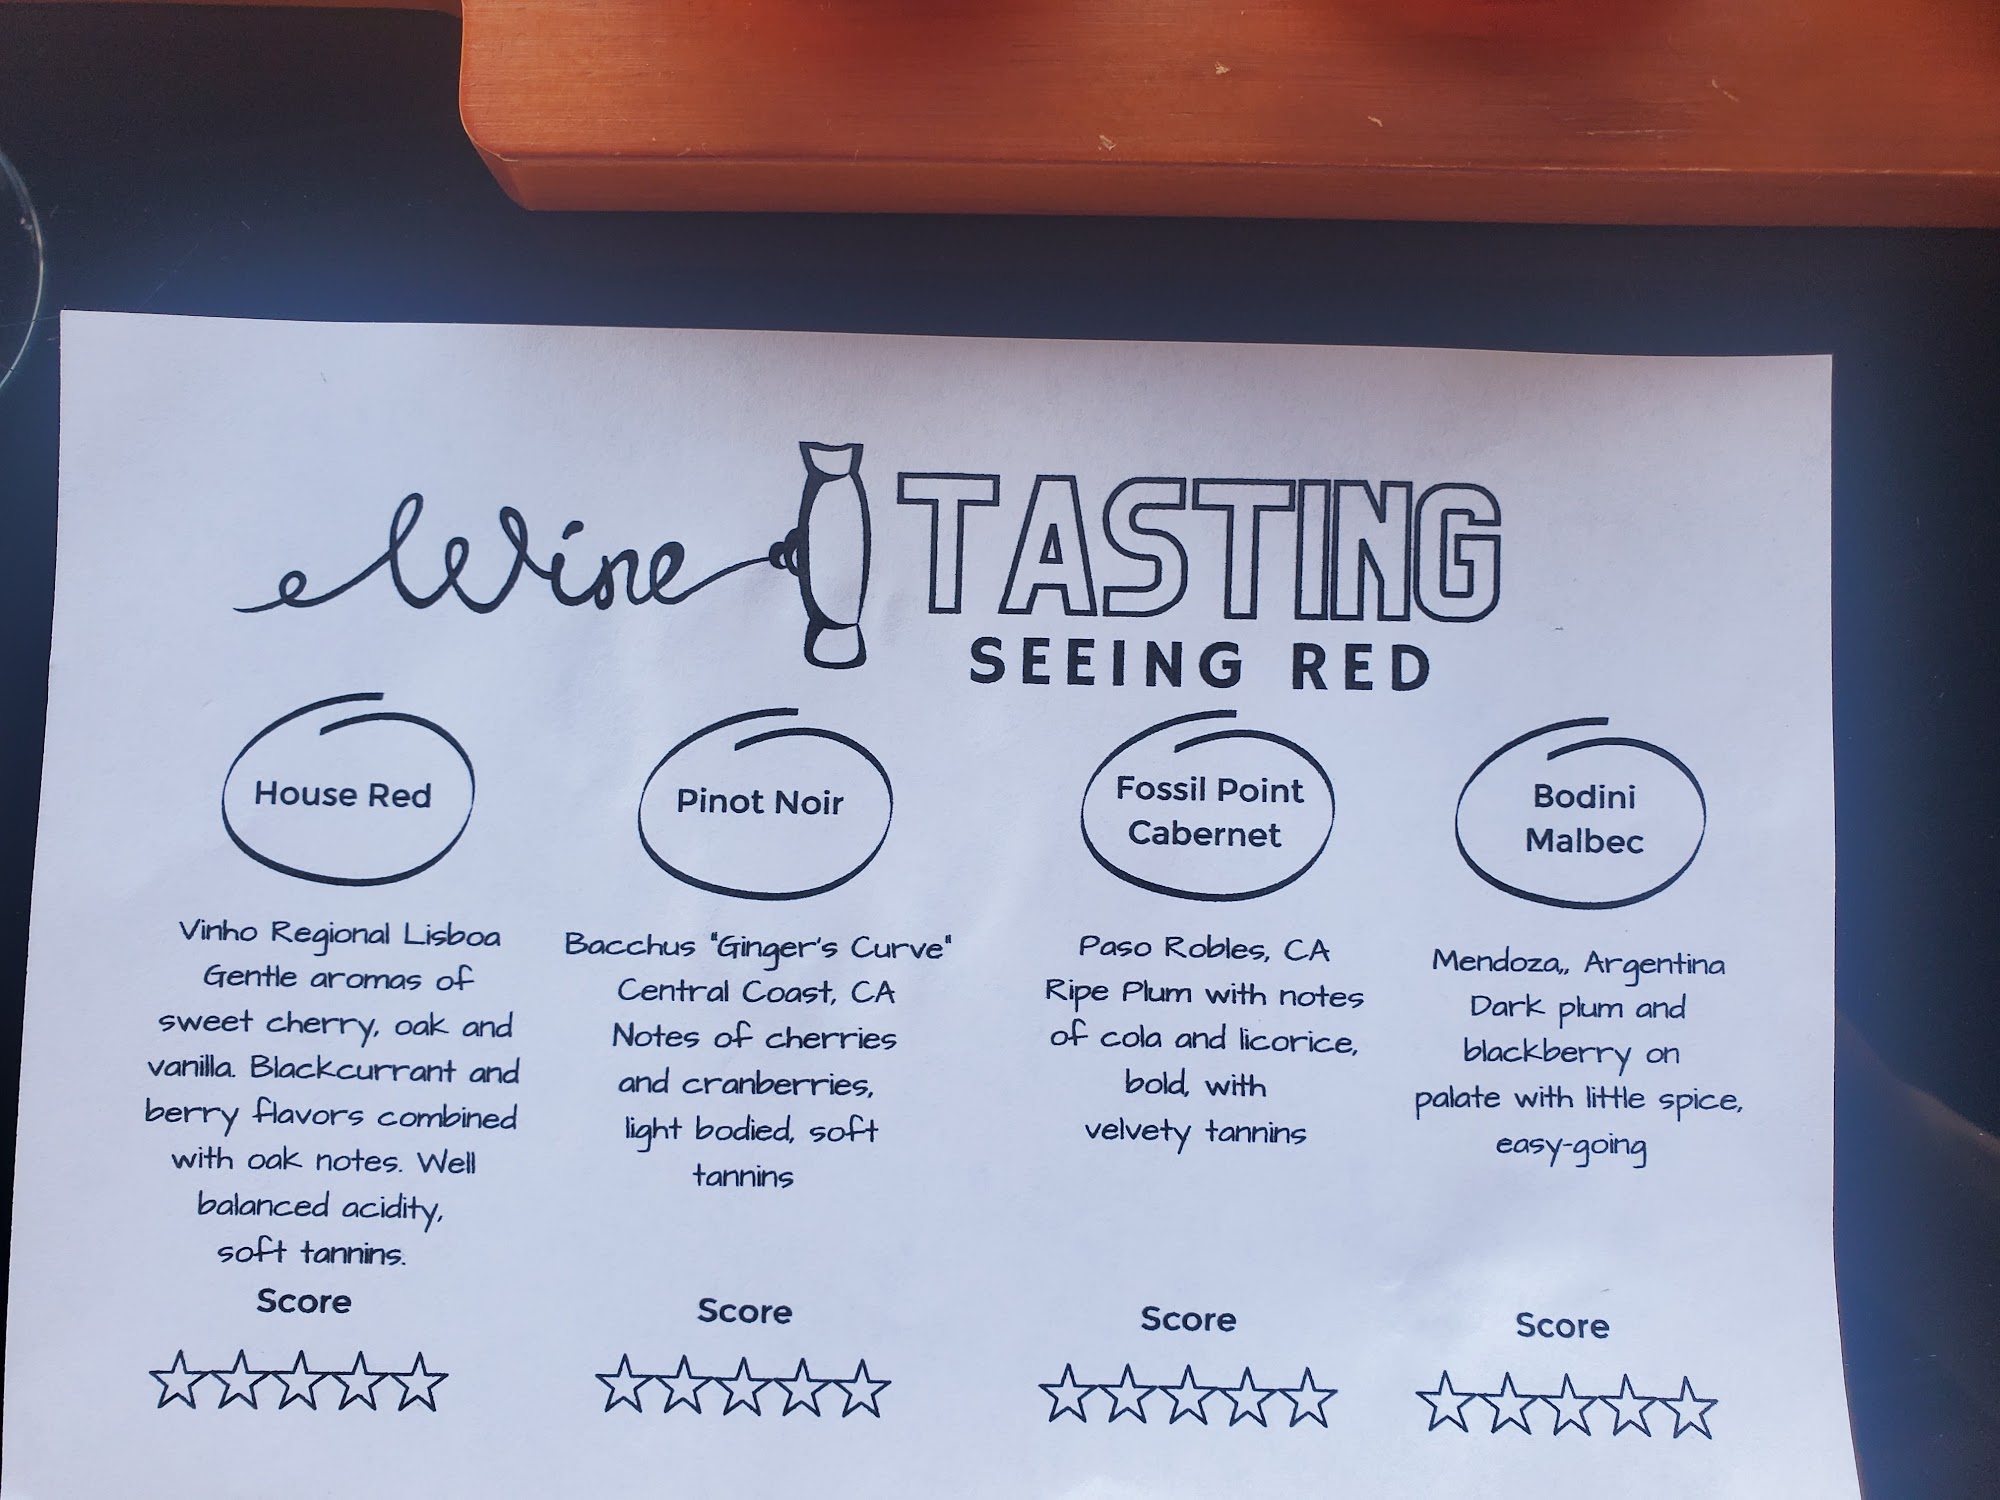 Wine TASTING
SEEING RED
House Red
Vinho Regional Lisboa
Gentle aromas of
sweet cherry, oak and
vanilla. Blackcurrant and
berry flavors combined
with oak notes. Well
balanced acidity,
soft tannins.
Score
Pinot Noir
Bacchus "Ginger's Curve"
Central Coast, CA
Notes of cherries
and cranberries,
light bodied, soft
tannins
Score
Fossil Point
Cabernet
Paso Robles, CA
Ripe Plum with notes
of cola and licorice,
bold, with
velvety tannins
Score
Bodini
Malbec
Mendoza,, Argentina
Dark plum and
blackberry on
palate with little spice,
easy-going
Score